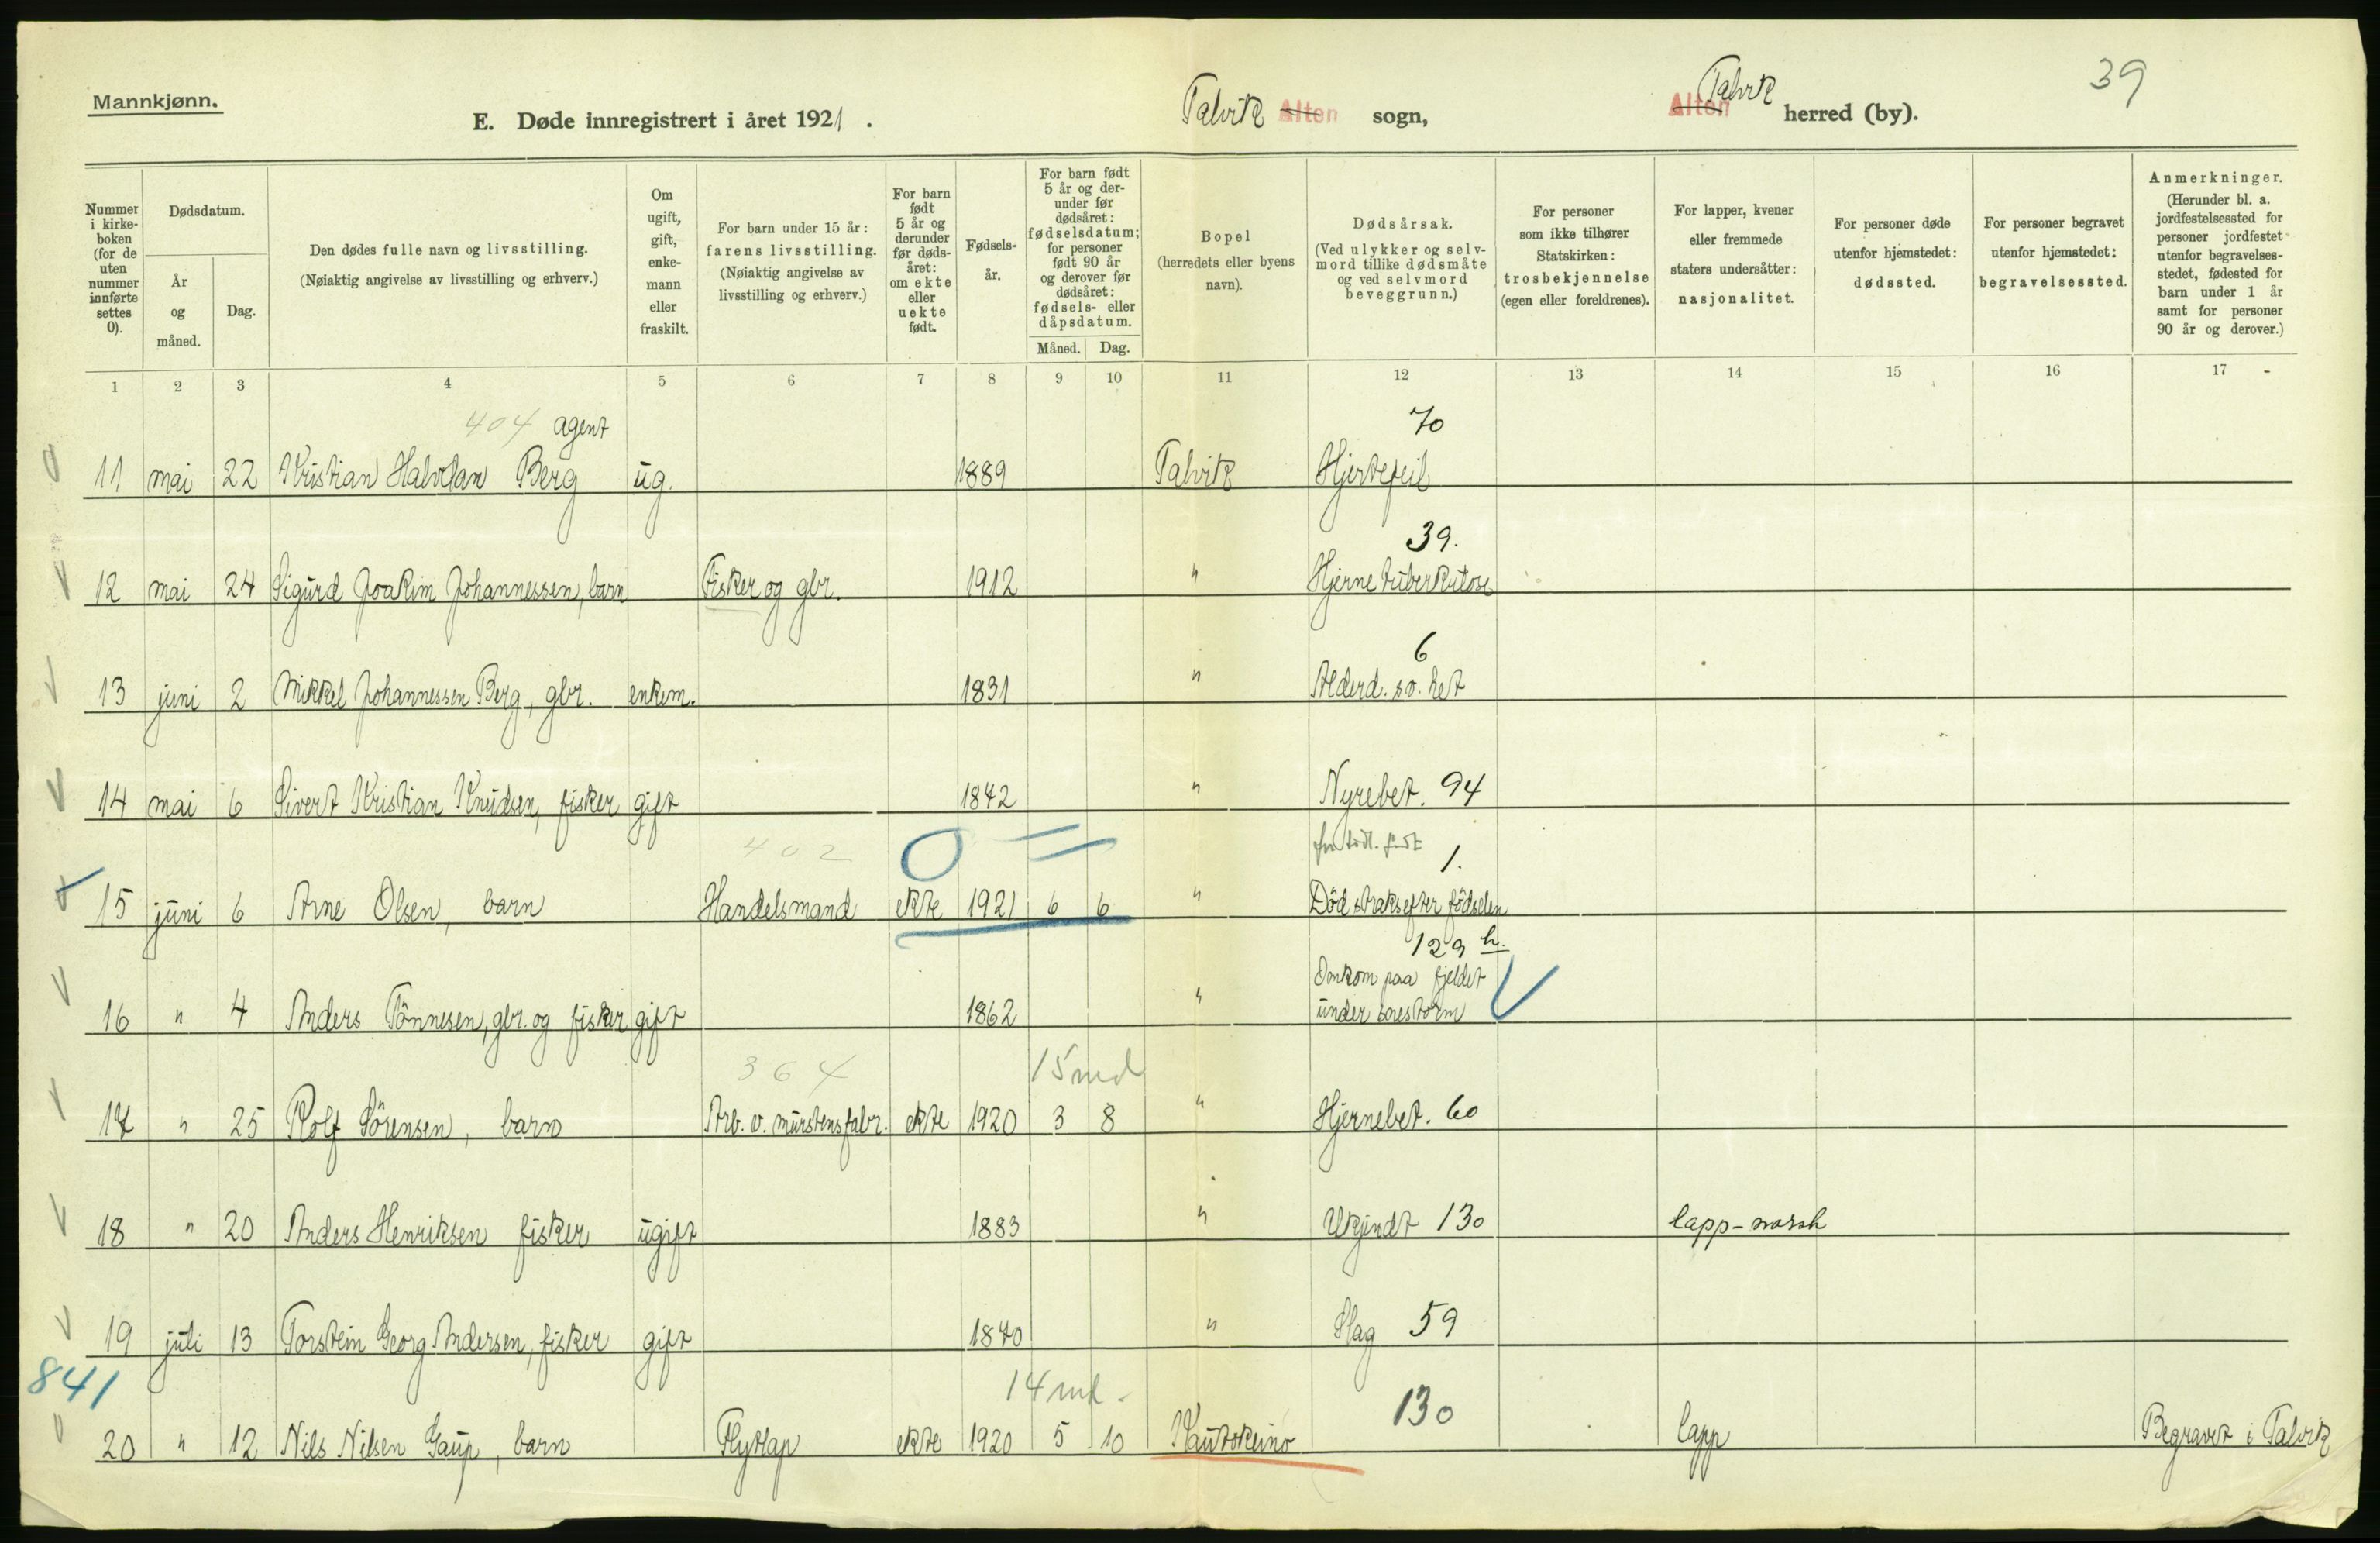 Mannkjønn.
E. Døde innregistrert i året 1921.
Talvik Alten sogn,
Talvik Alten herred (by).
39
Nummer i kirkeboken (for de uten nummer innførte settes 0).
Dødsdatum.
År og måned.
Dag.
Den dødes fulle navn og livsstilling.
(Nøiaktig angivelse av livsstilling og erhverv.)
Om ugift, gift, enkemann eller fraskilt.
For barn under 15 år: farens livsstilling.
(Nøiaktig angivelse av livsstilling og erhverv.)
For barn født 5 år og derunder før dødsåret: om ekte eller uekte født.
Fødselsår.
For barn født 5 år og derunder før dødsåret: fødselsdatum; for personer født 90 år og derover før dødsåret: fødsels- eller dåpsdatum.
Måned. Dag.
Bopel (herredets eller byens navn).
Dødsårsak.
(Ved ulykker og selvmord tillike dødsmåte og ved selvmord beveggrunn.)
For personer som ikke tilhører Statskirken: trosbekjennelse (egen eller foreldrenes).
For lapper, kvener eller fremmede staters undersåtter: nasjonalitet.
For personer døde utenfor hjemstedet: dødssted.
For personer begravet utenfor hjemstedet: begravelsessted.
Anmerkninger.
(Herunder bl. a. jordfestelsessted for personer jordfestet utenfor begravelsesstedet, fødested for barn under 1 år samt for personer 90 år og derover.)
1 2 3 4 5 6 7 8 9 10 11 12 13 14 15 16 17
404 agent 70
11 mai 22 Kristian Halvdan Berg ug. 1889 Talvik Hjertefeil
39.
12 mai 24 Sigurd Joakim Johannessen, barn Fisker og gbr. 1912 " Hjernetuberkulose
6
13 juni 2 Mikkel Johannessen Berg, gbr. enkem. 1831 " Alderd. sv. het
14 mai 6 Sivert Kristian Knudsen, fisker gift 1842 " Nyrebet. 94
402 0 = 1.
15 juni 6 Arne Olsen, barn Handelsmand ekte 1921 6 6 " Död straks efter födselen
129 h.
Omkom paa fjeldet
16 " 4 Anders Tönnesen, gbr. og fisker gift 1862 " under snestorm
364 15 md
17 " 25 Rolf Sörensen, barn Arb. v. murstensfabr. ekte 1920 3 8 " Hjernebet. 60
18 " 20 Anders Henriksen fisker ugift 1883 " Ukjendt 130 lapp-norsk
19 juli 13 Torstein Georg Andersen, fisker gift 1870 " Slag 59
841 14 md. 130
20 " 12 Nils Nilsen Gaup, barn Flytlap ekte 1920 5 10 Kautokeino lapp Begravet i Talvik